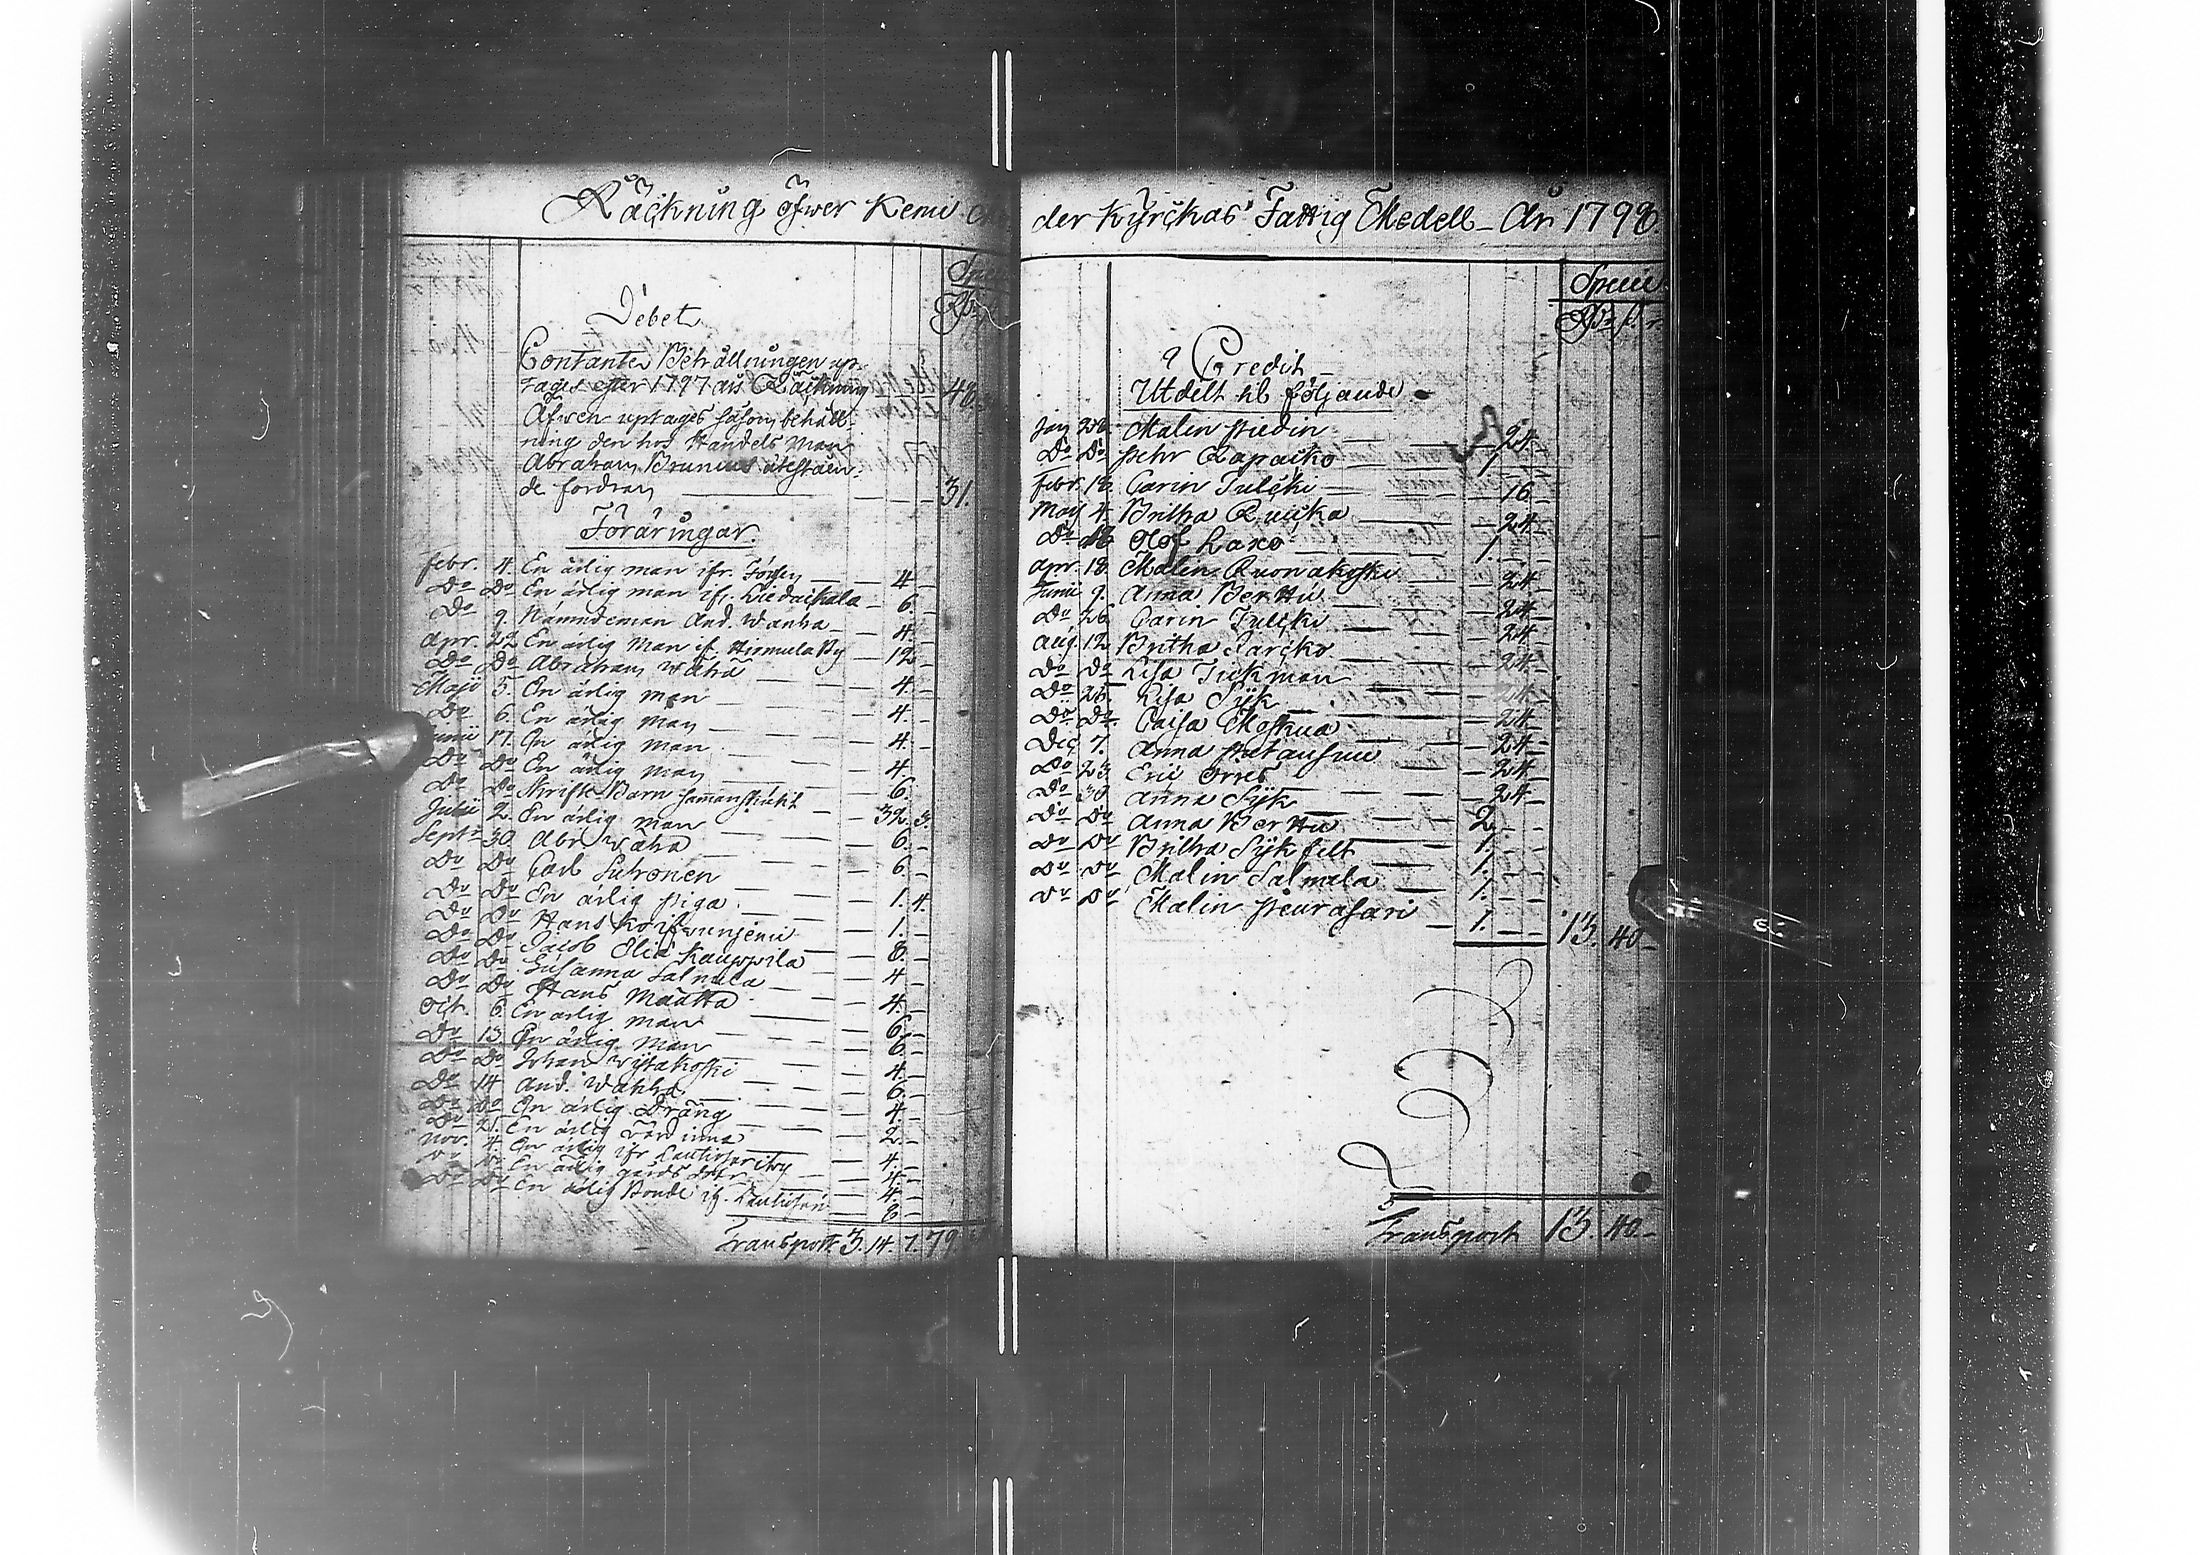 Räckning öfwer Kemi
Debet
Contante Behållningen up-
tages efter 1797 års Räckning 48
Äfwen uptages såsom behåll-
ning den hos Handels Man
Abraham Brunius utestäen-
de fordran — 31.
Föräringar.
Febr. 4. En ärlig man ifr. — 4. -
Do Do En ärlig man if. Liedackala — 6. -
Do 9. Nämndeman And. Wanha — 4. -
Apr. 22 En ärlig Man if. By — 12 -
Do Do Abraham Wähä — 4. -
Maji 5. En ärlig man — 4. -
Do 6. En ärlig man — 4. -
Junii 17. En ärlig man — 4. -
Do Do En ärlig man — 6. -
Do Do Skrift Barn sammanskåtit — 32. 3.
2. En ärlig man — 6. -
Sept. 30 Abr. Wäha — 6. -
Do Do Carl Suhonen — 1. 4.
Do Do En ärlig piga — 1. -
Do Do Hans — 8. -
Do Do Jacob Elia Kauppila — 4 -
Do Do Susanna Salmela — 4. -
Do Do Hans Määtta — 6. -
Oct. 6 En ärlig man — 6. -
Do 13. En ärlig man — 4. -
Do Do Johan — 6. -
Do 14 And. Wahha — 4. -
Do Do En ärlig Dräng — 2. -
Do 21. En ärlig — 4. -
Nov. 4. En ärlig ifr — 4. -
Do Do En ärlig gårds — 4. -
Do Do En ärlig Bonde if. — 8 -
Transport 3. 14. 7. 79.
der Kyrckas Fattig Medell - År 1798.
Specie
Credit
Utdelt til följande
Jan 28. Malin — 24 -
Do Do Pehr Rapacko — 1. - -
Febr. 18. Carin Julcki — 16 -
May 4. Britha Ruicka — 24 -
Do Olof Laxo — 1. - -
Apr. 18. Malin Ruonakoski — 24 -
Junii 9. Anna Berttu — 24 -
Do 26 Carin Julcki — 24 -
Aug. 12 Britha Parcko — 24 -
Do Do Lisa Tickman — 24 -
Do 26. Lisa Sÿk — 24 -
Do Do Caisa — 24 -
Dec 7. Anna — 24 -
Do 23 Eric Orres — 24 -
Do 30 Anna Sÿk — 2. - -
Do Do Anna Berttu — 1. - -
Do Do Britha Sÿkfelt — 1. - -
Do Do Malin Salmela — 1. - -
Do Do Malin Peurasari — 1. - - 13. 40 -
Transport 13. 40 -